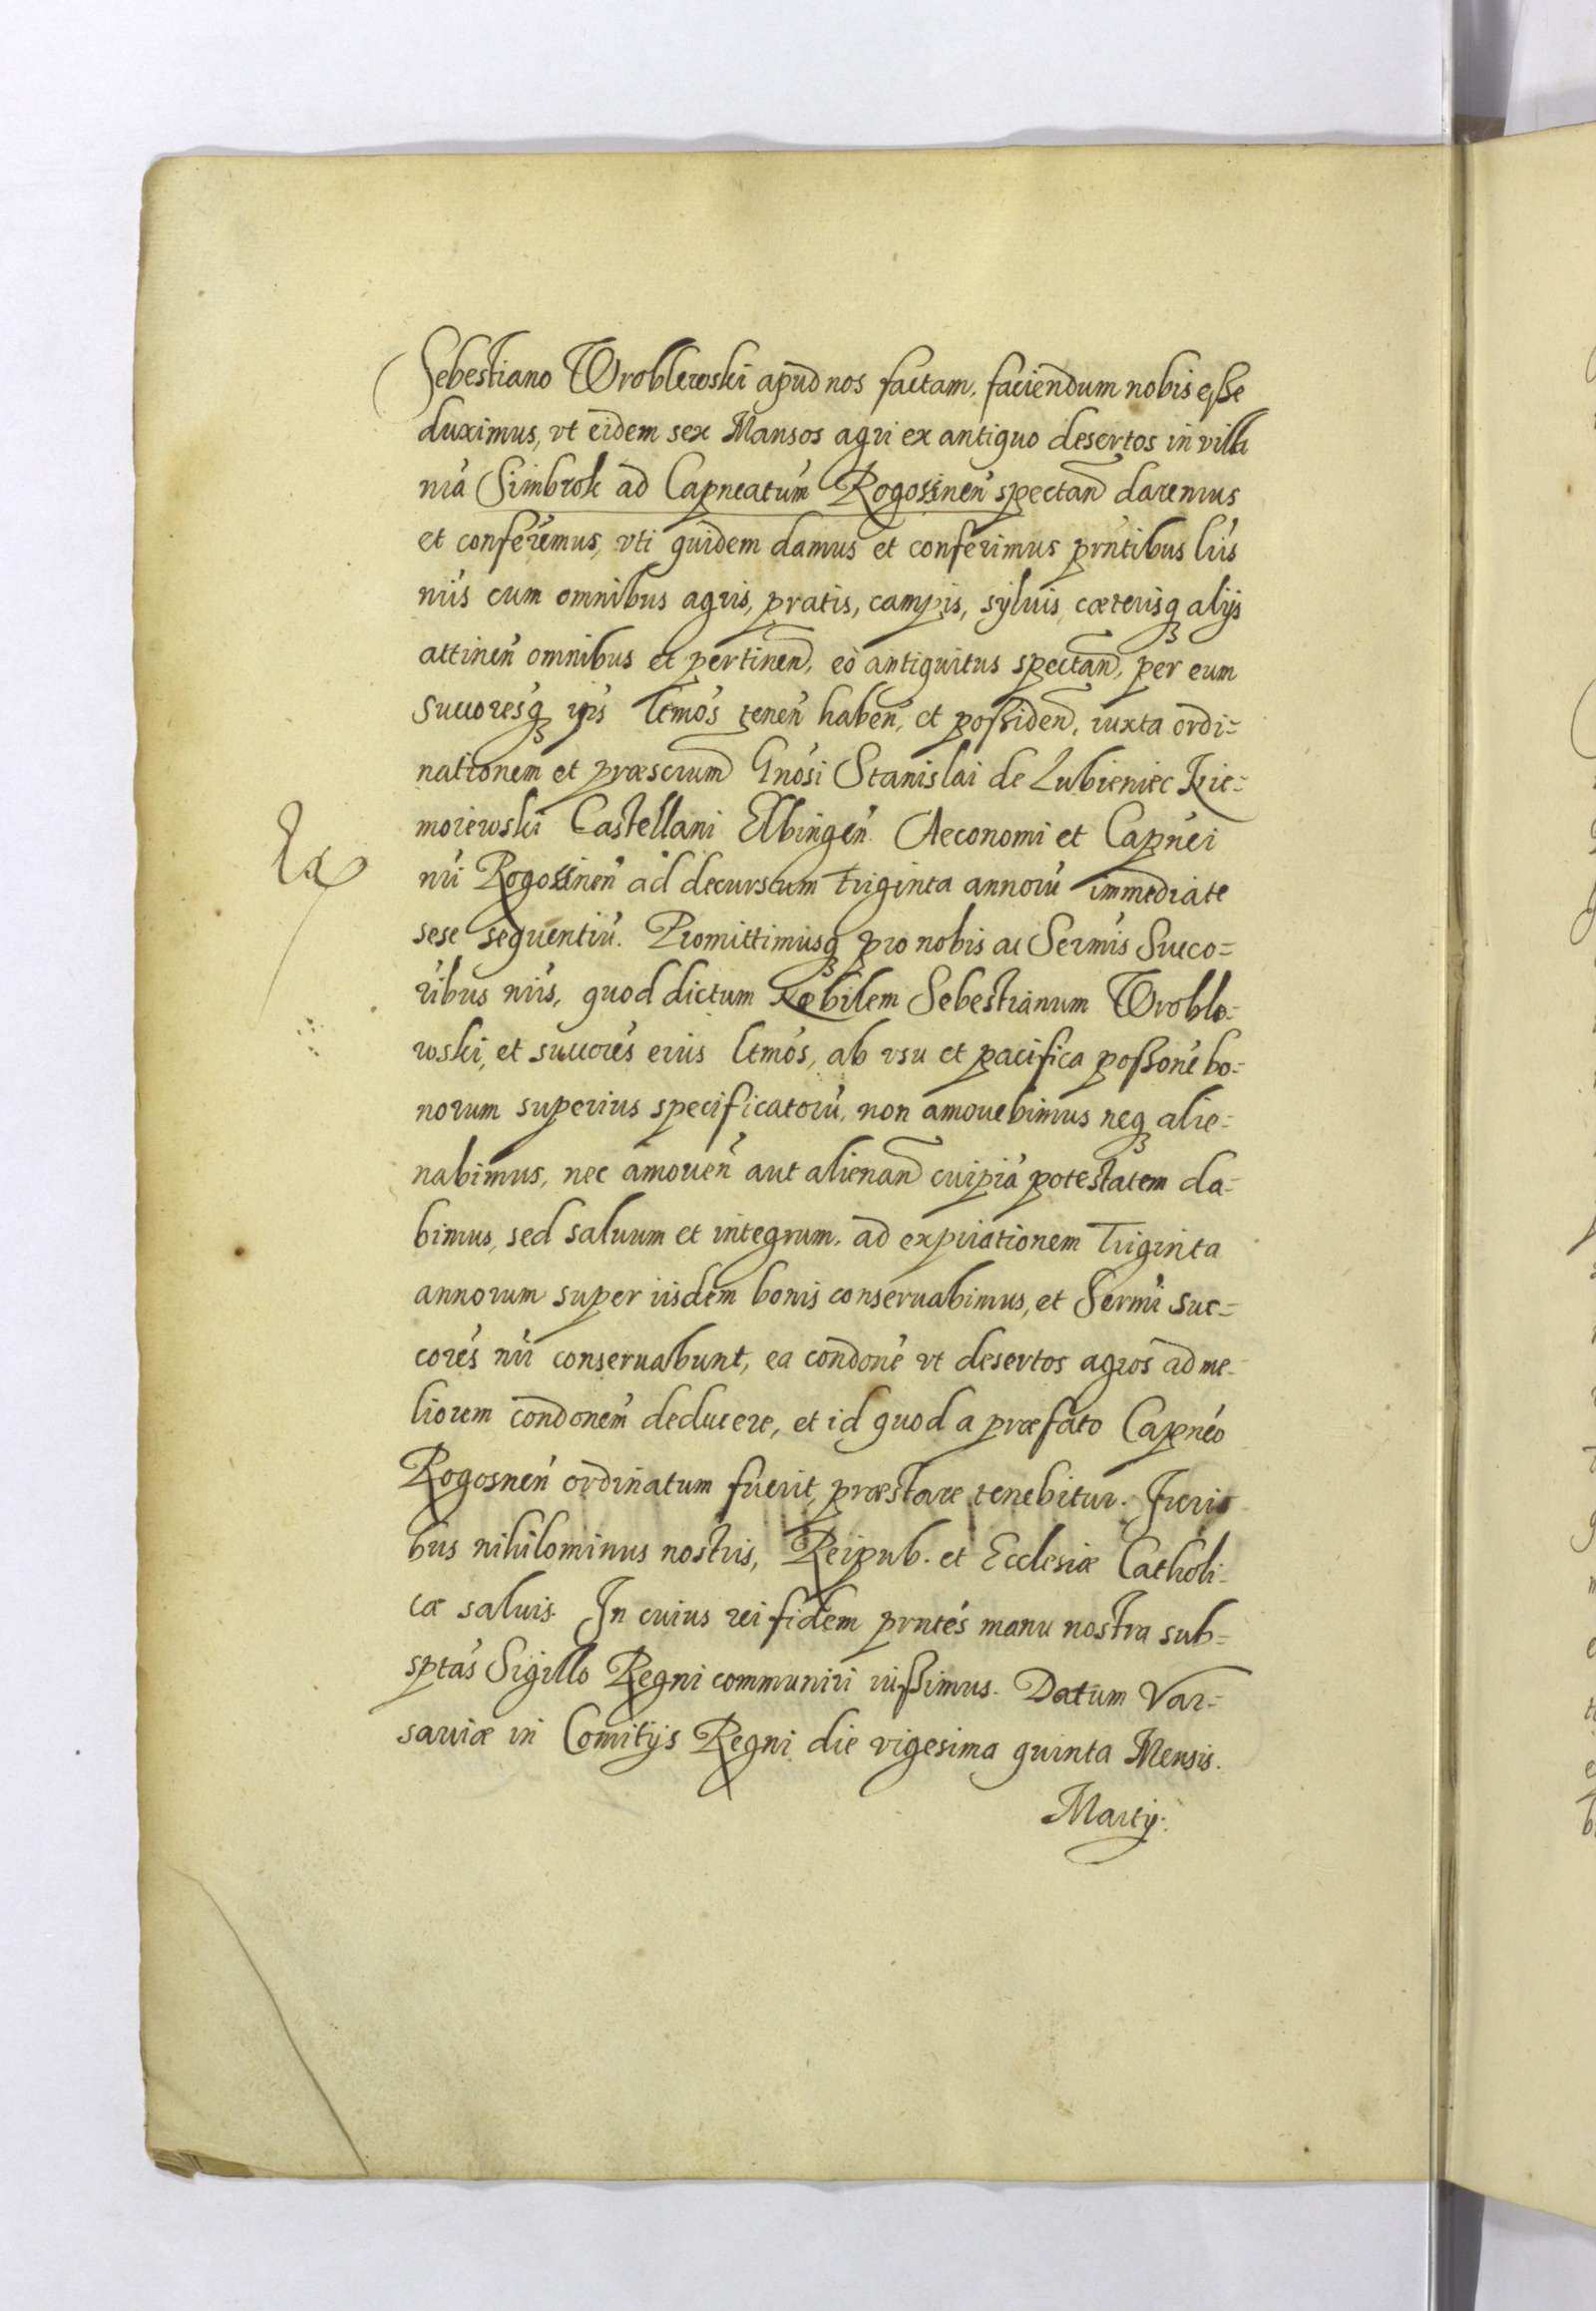 Sebestiano Wroblewski apud nos factam, faciendum nobis esse
duximus, vt eidem sex Mansos agri ex antiquo desertos in villa
nrá Simbrok ad Capneatum Rogossnen spectan daremus
et conferemus, vti quidem damus et conferimus prntibus lrís
nrís cum omnibus agris, pratis, campis, syluis, cæterisq alijs
attinen omnibus et pertinen, eò antiquitus spectan, per eum
Succoresq ipís ltmos tenen haben, et possiden, iuxta ordi=
nationem et præscrum Gnosi Stanislai de Lubieniec Nie=
moiewski Castellani Elbingen Aeconomi et Capnei
nrí Rogossnen ad decursum triginta annorú immediate
sese sequentiú. Promittimusq pro nobis ac Sermis Succo=
ribus nrís, quod dictum Nobilem Sebestianum Wroble=
wski, et succores eius ltmos, ab vsu et pacifica possone bo=
norum superius specificatorú, non amouebimus neq alie=
nabimus, nec amouen aut alienan cuipiá potestatem da=
bimus, sed saluum et integrum, ad expirationem Triginta
annorum super iisdem bonis conseruabimus, et Sermi Suc=
cores nrí conseruabunt, ea condone vt desertos agros ad me=
liorem condonem deducere, et id quod a præfato Capneo
Rogosnen ordinatum fuerit, præstare tenebitur. Juri=
bus nihilominus nostris, Reipub. et Ecclesiæ Catholi=
cæ saluis. In cuius rei fidem prntes manu nostra sub=
sptas Sigillo Regni communiri iussimus. Datum Var=
sauiæ in Comitijs Regni die vigesima quinta Mensis.
Martij.